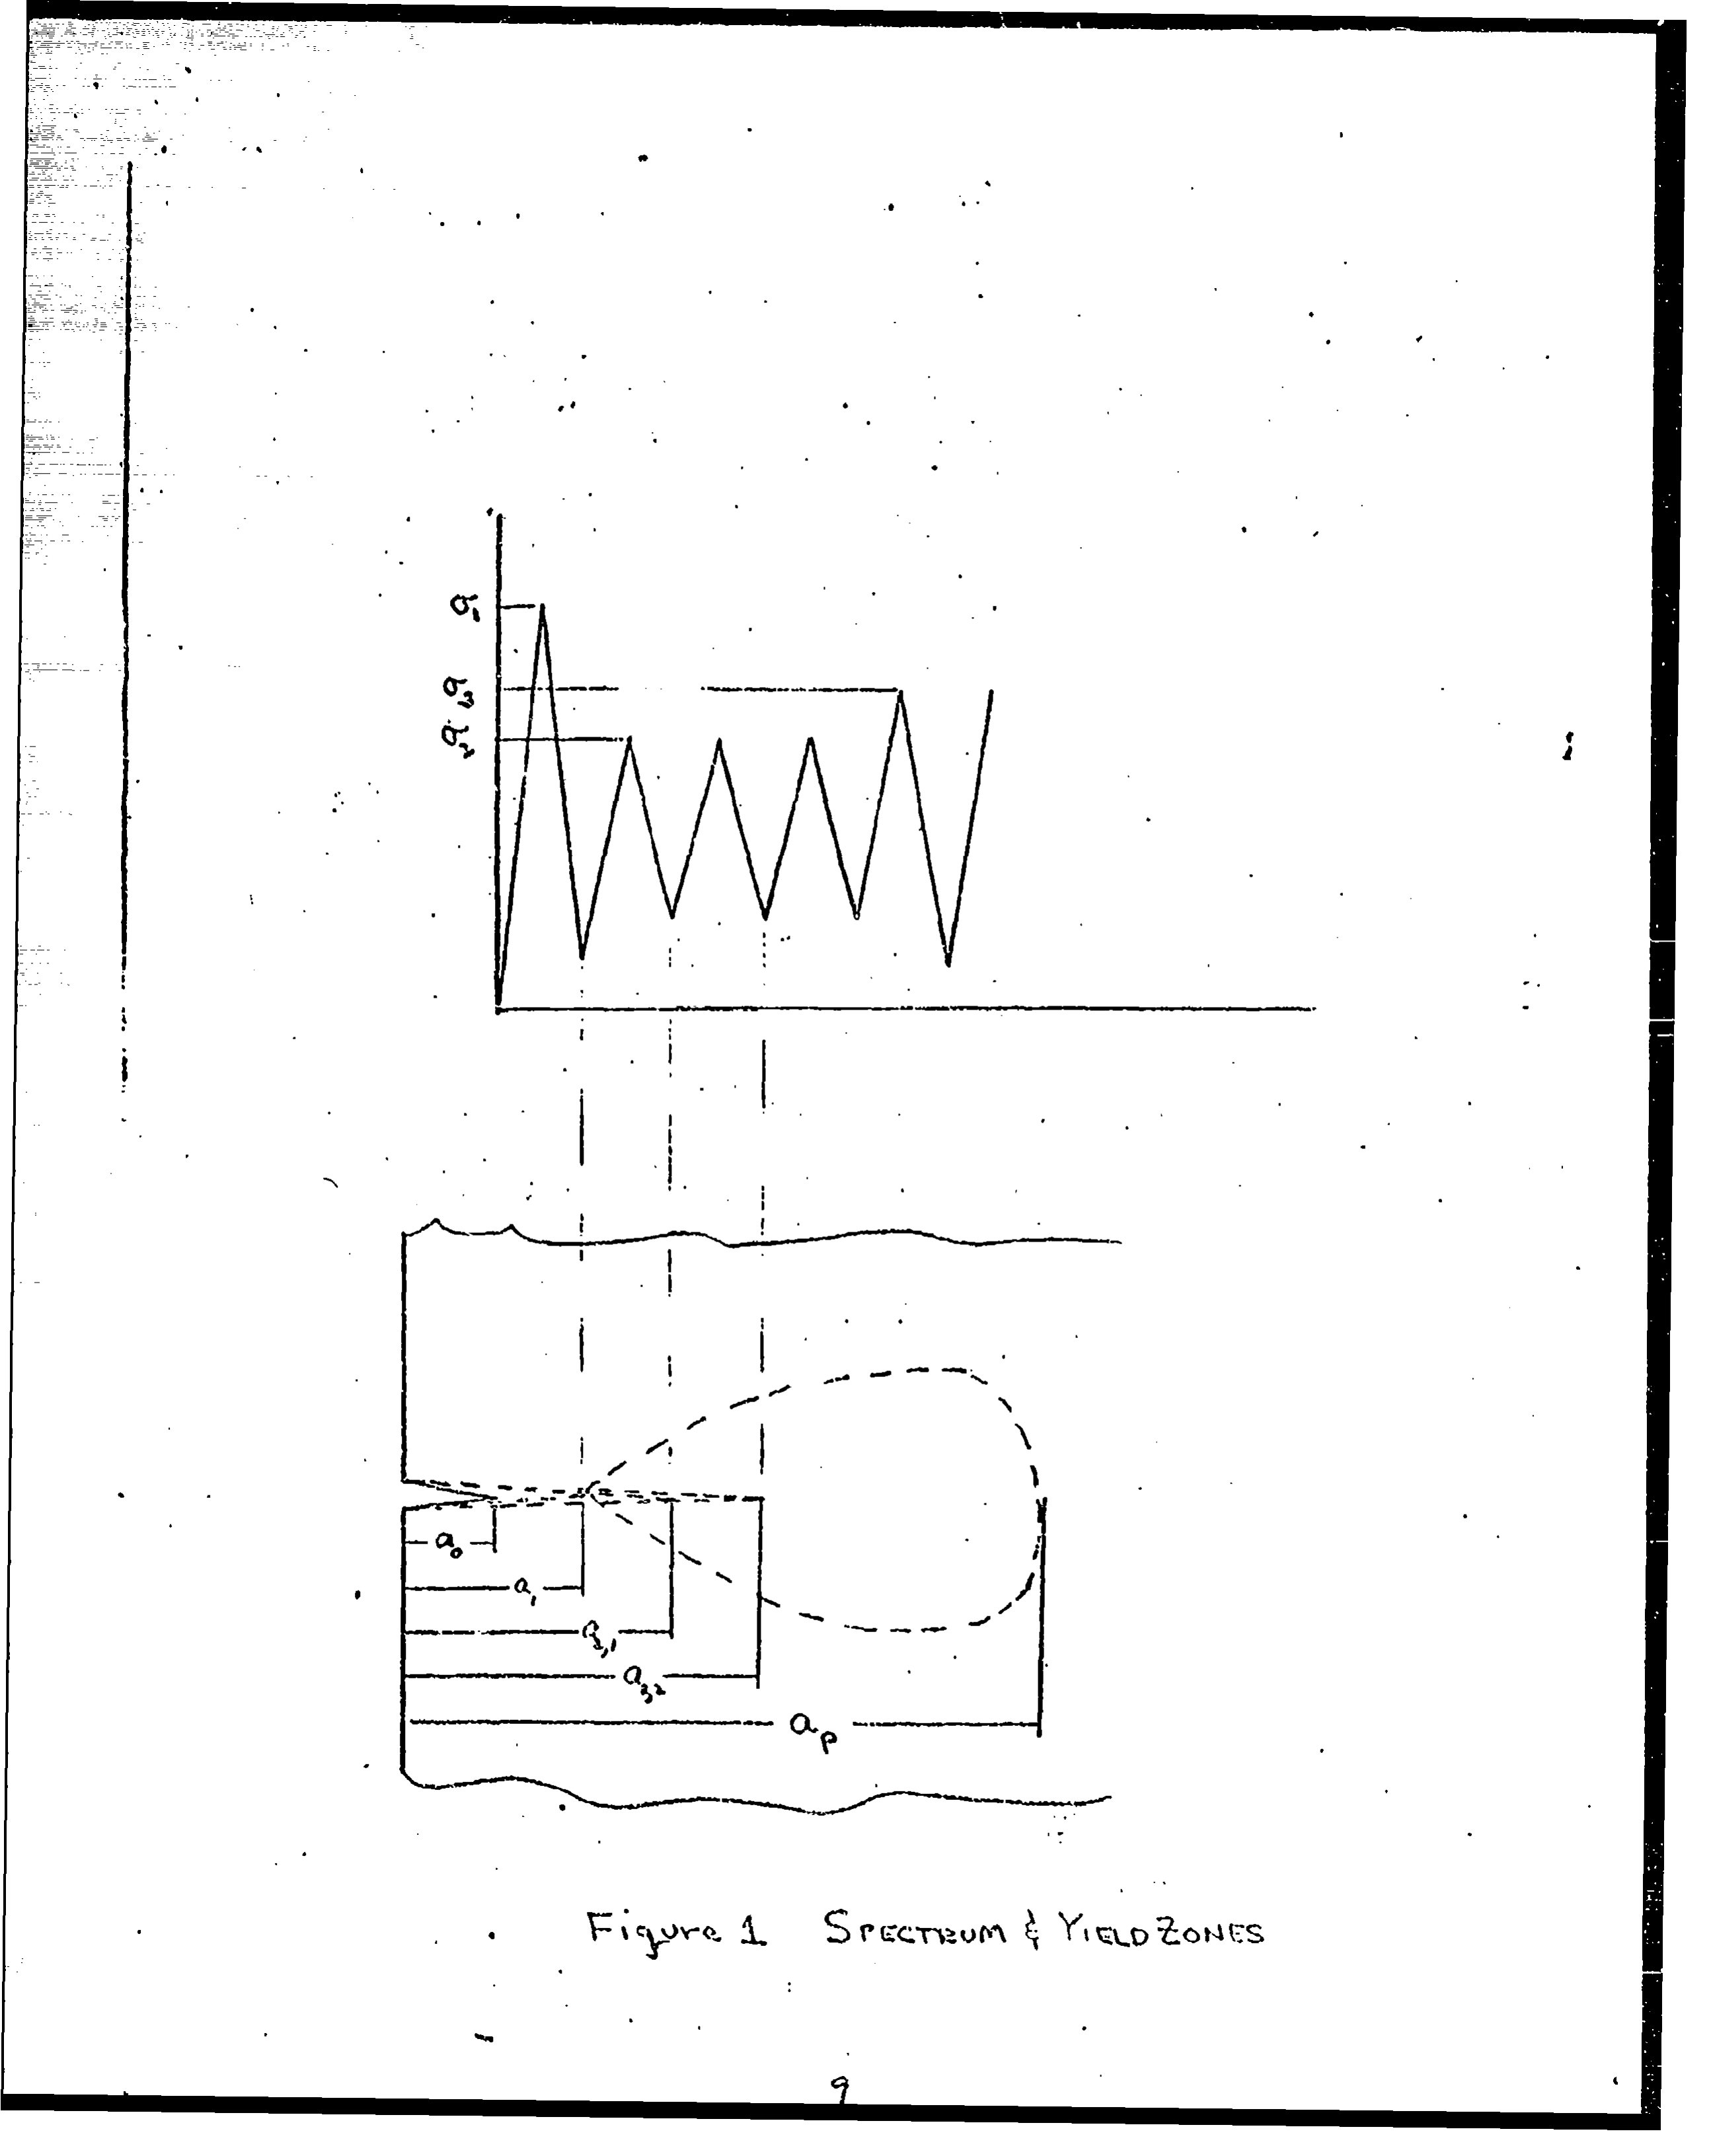 σ₁
σ₃
σ₂
a₀
a₁
a₂,₁
a₃₂
aₚ
Figure 1 SPECTRUM & YIELD ZONES
9